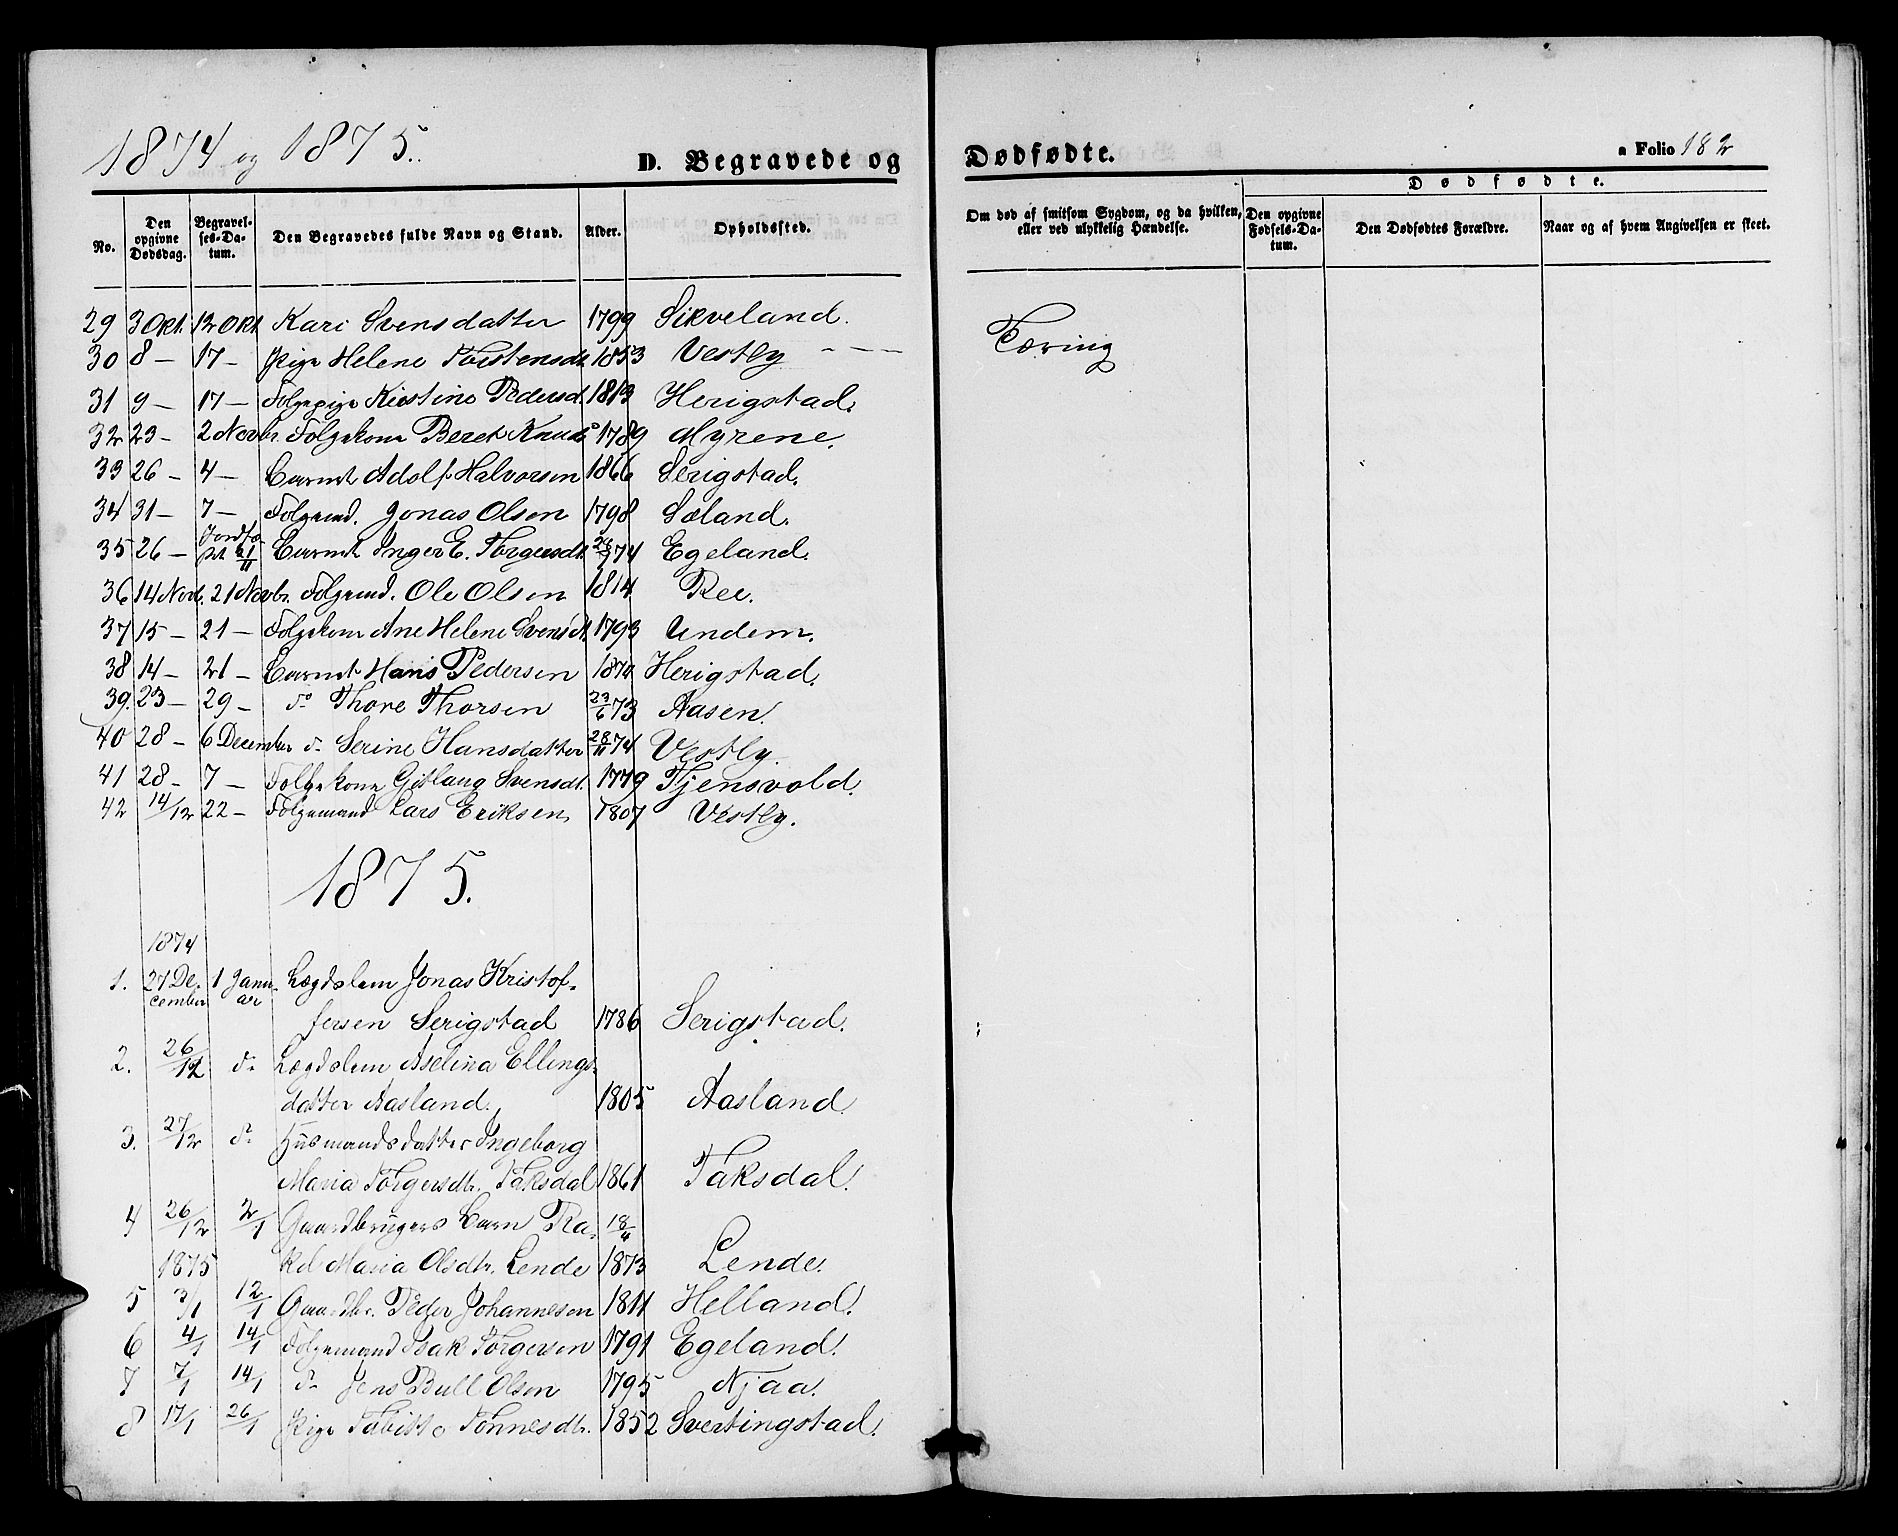 1874 og 1875.
D. Begravede og Dødfødte.
a Folio 182
No.
Den opgivne Dødsdag.
Begravelses-Datum.
Den Begravedes fulde Navn og Stand.
Alder.
Opholdssted.
Om død af smitsom Sygdom, og da hvilken, eller ved ulykkelig Hændelse.
Dødfødte.
Den opgivne Fødsels-Datum.
Den Dødfødtes Forældre.
Naar og af hvem Angivelsen er skeet.
29 3 Okt. 12 Okt. Kari Svensdatter 1799 Sikveland.
30 8 — 17 — Pige Helene Torstensdt. 1853 Vestly — — — Tæring
31 9 — 17 — Folgepige Kirstine Pedersd. 1813 Herigstad.
32 23 — 2 Novbr. Folgekone Beret Knuds 1789 Myrene.
33 26 — 4 — Barnet Adolf Halvorsen 1866 Serigstad.
34 31 — 7 — Folgemd. Jonas Olsen 1798 Sæland.
35 26 — Jordfæstet 21/11 Barnet Inger E. Torgersdt. 74 Egeland.
36 14 Novb. 21 Novbr. Folgemd. Ole Olsen 1814 Ree.
37 15 — 21 — Folgekone Ane Helene Svensdt. 1793 Undem.
38 14 — 21 — Barnet Hans Pedersen 1874 Herigstad.
39. 23 — 29 — do Thore Thorsen 23/6 73 Aasen.
40 28 — 6 December do Serine Hansdatter 28/11 74 Vestly.
41 28 — 7 — Folgekone Gitlaug Svensdt. 1779 Tjensvold.
42 14/12 22 — Folgemand Lars Eriksen 1807 Vestly.
1875.
1874
1. 27 December 1 Januar Lægdslem Jonas Kristof-
fersen Serigstad 1786 Serigstad.
2. 26/12 do Lægdslem Aselina Ellings-
datter Aasland. 1805 Aasland.
3. 27/12 do Husmandsdatter Ingeborg
Maria Torgersdtr. Taksdal 1861 Taksdal.
4 26/12 2/1 Gaardbrugers Barn Ra- 18/4
1875 kel Maria Olsdtr. Lende 1873 Lende.
5 3/1 12/1 Gaardbr. Peder Johannesen 1811 Helland.
6 4/1 14/1 Folgemand Isak Torgersen 1791 Egeland.
7 7/1 14/1 do Jens Bull Olsen 1795 Njaa.
8 17/1 26/1 Pige Tabitte Tønnesdtr. 1852 Svertingstad.